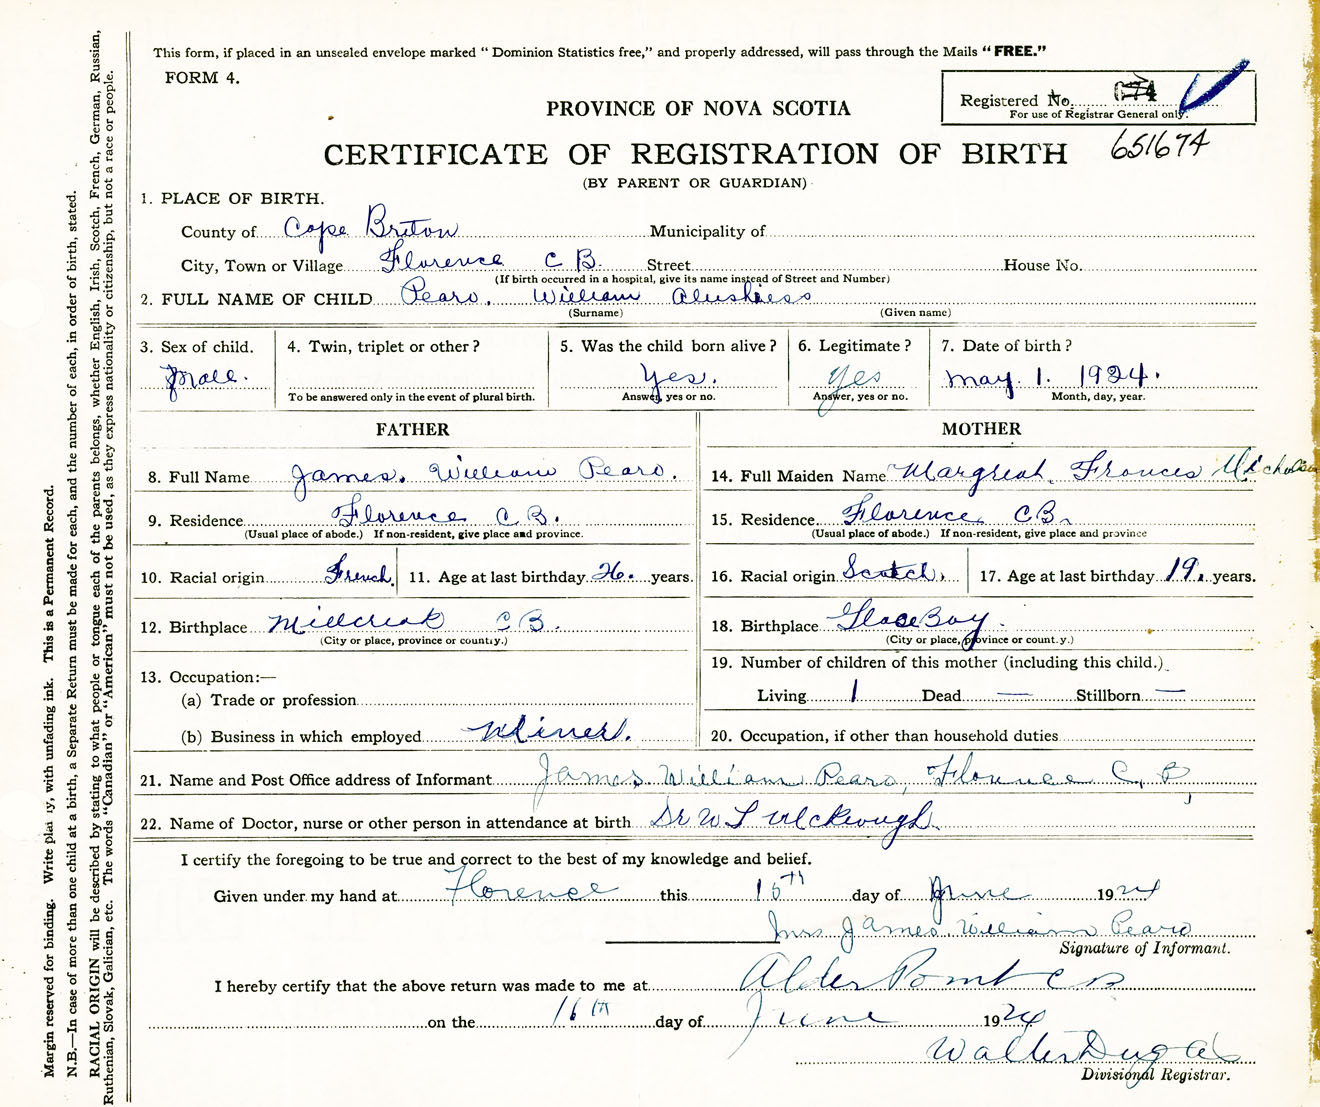 This form, if placed in an unsealed envelope marked “ Dominion Statistics free,” and properly addressed, will pass through the Mails “ FREE.”
FORM 4.
Registered No.
For use of Registrar General only.
651674
PROVINCE OF NOVA SCOTIA
CERTIFICATE OF REGISTRATION OF BIRTH
(BY PARENT OR GUARDIAN)
1. PLACE OF BIRTH.
County of Cape Breton Municipality of
City, Town or Village Florence C B. Street House No.
(If birth occurred in a hospital, give its name instead of Street and Number)
2. FULL NAME OF CHILD Pearo. William
(Surname) (Given name)
3. Sex of child. 4. Twin, triplet or other ? 5. Was the child born alive ? 6. Legitimate ? 7. Date of birth ?
Male. Yes. Yes May 1. 1924.
To be answered only in the event of plural birth. Answer, yes or no. Answer, yes or no. Month, day, year.
FATHER MOTHER
8. Full Name James. William Pearo. 14. Full Maiden Name Margreat. Frances Nicholson
9. Residence Florence C B. 15. Residence Florence C B.
(Usual place of abode.) If non-resident, give place and province. (Usual place of abode.) If non-resident, give place and province
10. Racial origin French. 11. Age at last birthday 26. years. 16. Racial origin Scotch. 17. Age at last birthday 19. years.
12. Birthplace Millcreak C B. 18. Birthplace Glace Bay.
(City or place, province or county.) (City or place, province or county.)
13. Occupation:— 19. Number of children of this mother (including this child.)
(a) Trade or profession Living 1 Dead — Stillborn —
(b) Business in which employed Miner. 20. Occupation, if other than household duties
21. Name and Post Office address of Informant James William Pearo, Florence C, B
22. Name of Doctor, nurse or other person in attendance at birth Dr W L McKeough.
I certify the foregoing to be true and correct to the best of my knowledge and belief.
Given under my hand at Florence this 15th day of June 1924
Mrs James William Pearo
Signature of Informant.
I hereby certify that the above return was made to me at Alder Point C B
on the 16th day of June 1924
Walter
Divisional Registrar.
Margin reserved for binding. Write plainly, with unfading ink. This is a Permanent Record.
N.B.—In case of more than one child at a birth, a Separate Return must be made for each, and the number of each, in order of birth, stated.
RACIAL ORIGIN will be described by stating to what people or tongue each of the parents belongs, whether English, Irish, Scotch, French, German, Russian,
Ruthenian, Slovak, Galician, etc. The words “Canadian” or “American” must not be used, as they express nationality or citizenship, but not a race or people.